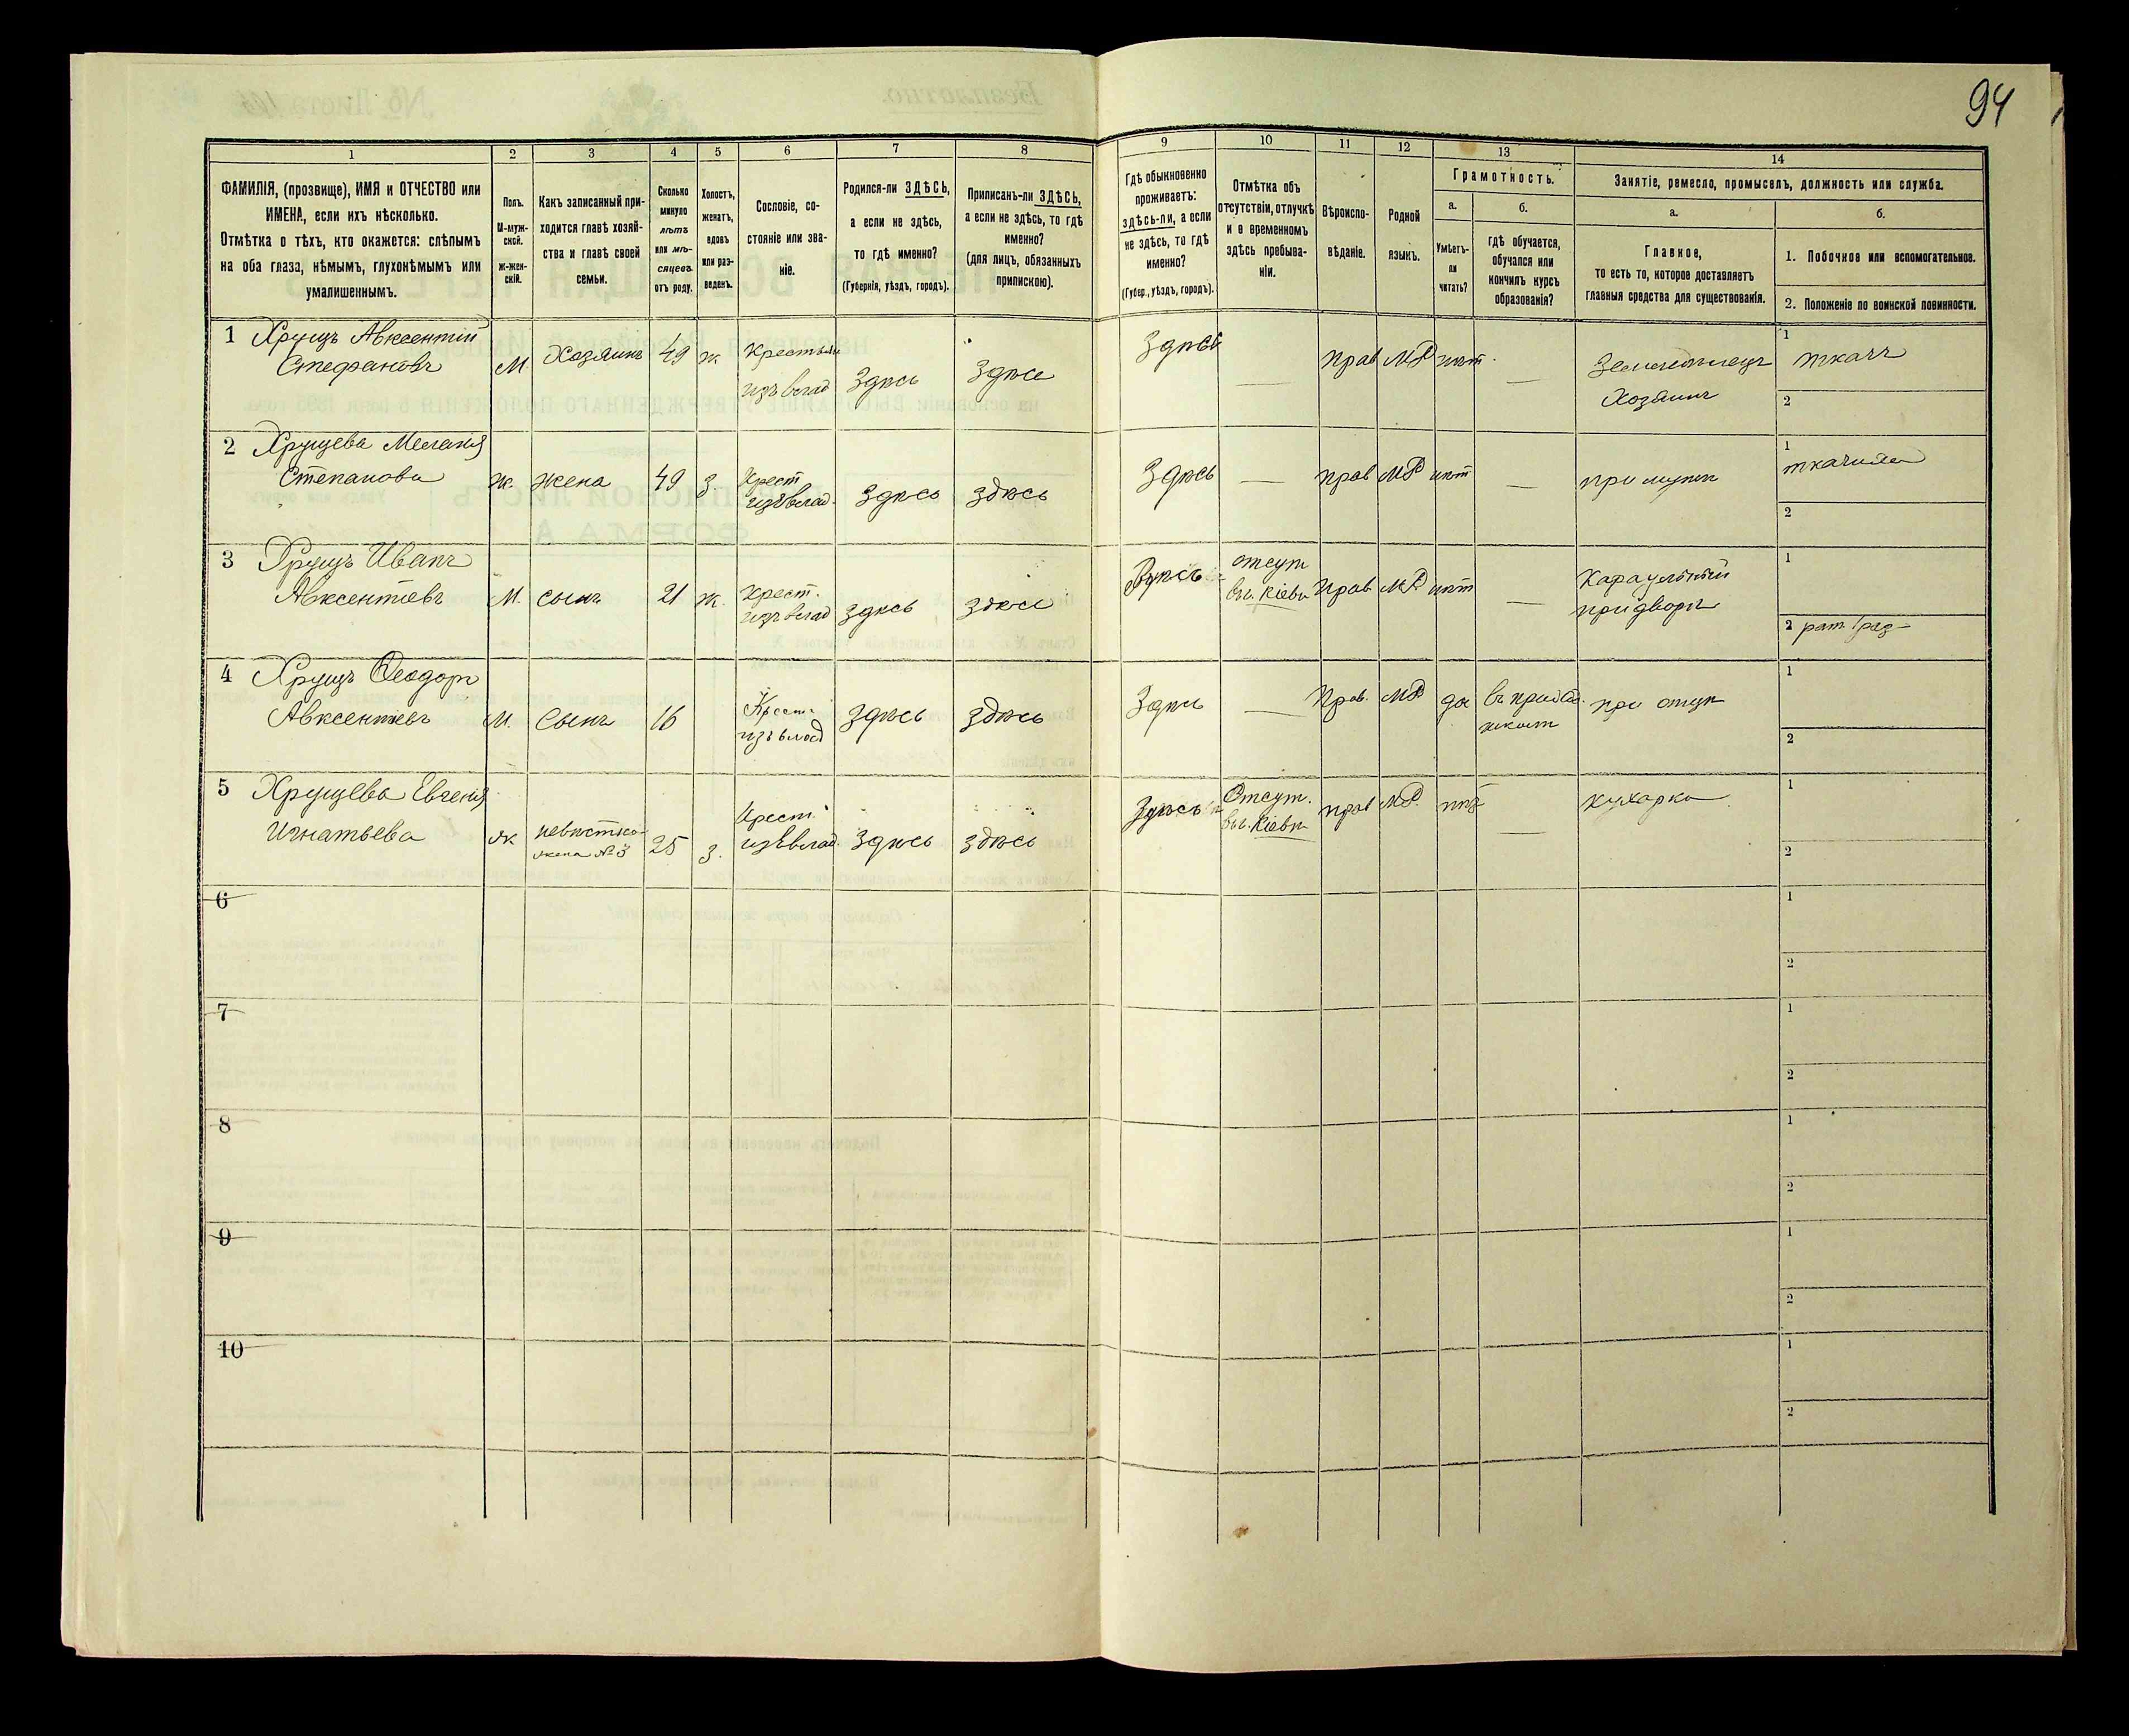 94
1 2 3 4 5 6 7 8 9 10 11 12 13 14
ФАМИЛІЯ, (прозвище), ИМЯ и ОТЧЕСТВО или
ИМЕНА, если ихъ нѣсколько.
Отмѣтка о тѣхъ, кто окажется: слѣпымъ
на оба глаза, нѣмымъ, глухонѣмымъ или
умалишеннымъ.
Полъ.
М-муж-
ской.
Ж-жен-
скій.
Какъ записанный при-
ходится главѣ хозяй-
ства и главѣ своей
семьи.
Сколько
минуло
лѣтъ
или мѣ-
сяцевъ
отъ роду.
Холостъ,
женатъ,
вдовъ
или раз-
веденъ.
Сословіе, со-
стояніе или зва-
ніе.
Родился-ли ЗДѢСЬ,
а если не здѣсь,
то гдѣ именно?
(Губернія, уѣздъ, городъ).
Приписанъ-ли ЗДѢСЬ,
а если не здѣсь, то гдѣ
именно?
(для лицъ, обязанныхъ
припискою).
Гдѣ обыкновенно
проживаетъ:
здѣсь-ли, а если
не здѣсь, то гдѣ
именно?
(Губер., уѣздъ, городъ).
Отмѣтка объ
отсутствіи, отлучкѣ
и о временномъ
здѣсь пребыва-
ніи.
Вѣроиспо-
вѣданіе.
Родной
языкъ.
Грамотность.
а.
Умѣетъ-
ли
читать?
б.
гдѣ обучается,
обучался или
кончилъ курсъ
образованія?
Занятіе, ремесло, промыселъ, должность или служба.
а.
Главное,
то есть то, которое доставляетъ
главныя средства для существованія.
б.
1. Побочное или вспомогательное.
2. Положеніе по воинской повинности.
1 Хрущъ Авксентій
Стефановъ
М.
Хозяинъ
49
ж.
Крестьян
изъ влад
Здѣсь
Здѣсь
Здѣсь
—
прав
МР
нѣт.
—
Земледѣлецъ
Хозяинъ
1 ткачъ
2
2 Хрущева Меланія
Степанова
ж.
жена
49
з.
Крест
изъ влад.
Здѣсь
здѣсь
Здѣсь
—
прав
МР
нѣт
—
при мужѣ
1 ткачиха
2
3 Хрущъ Иванъ
Авксентіевъ
М.
сынъ
21
ж.
Крест.
изъ влад
здѣсь
здѣсь
Здѣсь
отсут
въ г. Кіевѣ
Прав
МР
нѣт
—
Караульный
при дворѣ
1
2 рат. 1 раз
4 Хрущъ Ѳеодоръ
Авксентіевъ
М.
Сынъ
16
Крест.
изъ влад
здѣсь
здѣсь
Здѣсь
—
Прав.
МР
да
при отцѣ
1
2
5 Хрущева Евгенія
Игнатьева
ж
невѣстка
жена № 3
25
з.
Крест.
изъ влад.
Здѣсь
здѣсь
Здѣсь
Отсут.
въ г. Кіевѣ
прав
МР.
нѣт
—
кухарка
1
2
6
1
2
7
1
2
8
1
2
9
1
2
10
1
2